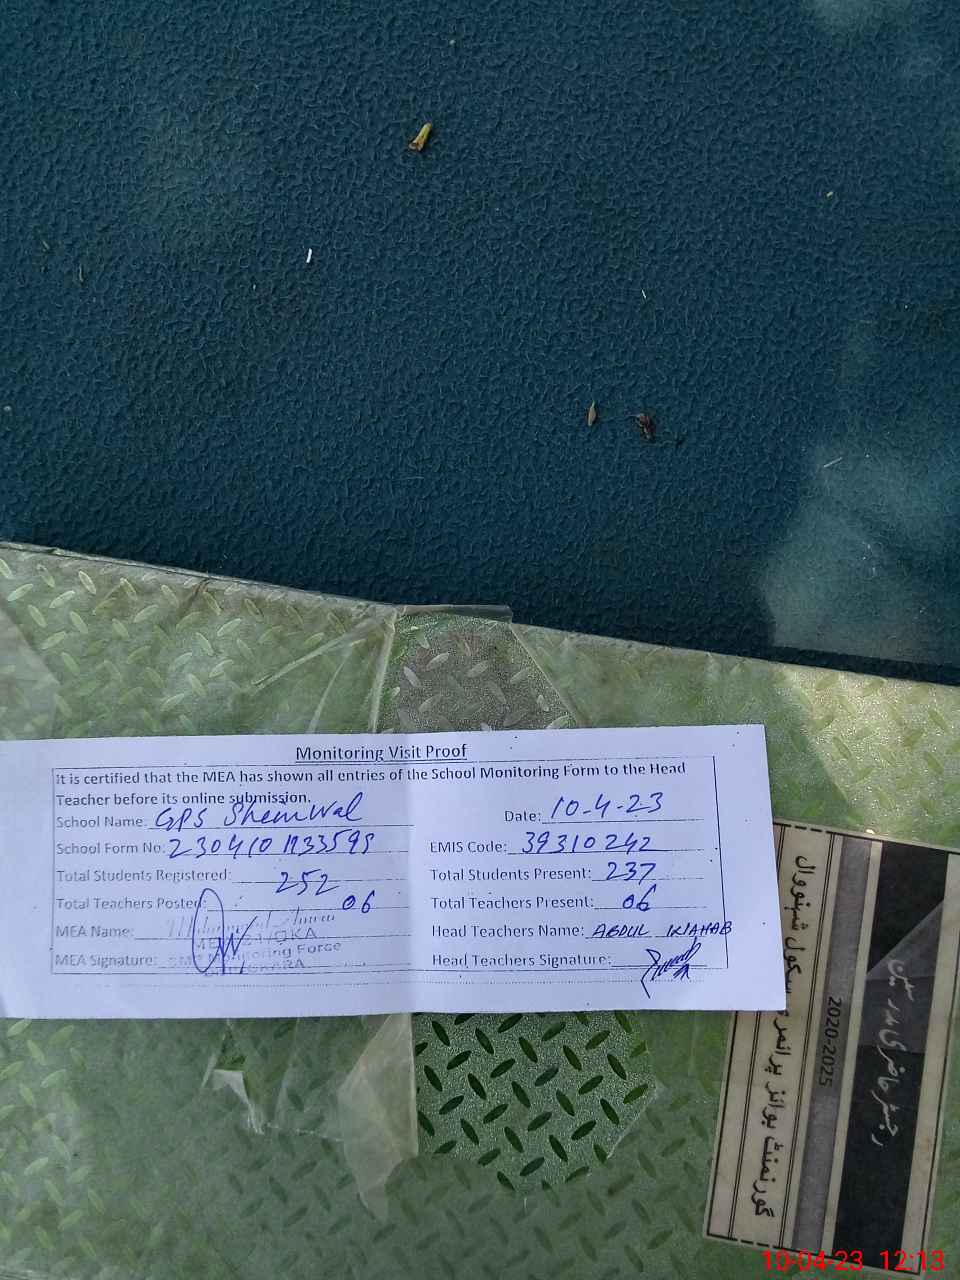 Monitoring Visit Proof
It is certified that the MEA has shown all entries of the School Monitoring Form to the Head
Teacher before its online submission.
School Name: GPS Shemwal Date: 10-4-23
School Form No: EMIS Code: 39310242
Total Students Registered: 252 Total Students Present: 237
Total Teachers Posted: 06 Total Teachers Present: 06
MEA Name: Head Teachers Name: ABDUL
MEA Signature: Monitoring Force Head Teachers Signature:
گورنمنٹ بوائز پرائمری سکول
2020-2025
رجسٹر حاضری
10-04-23 12:13